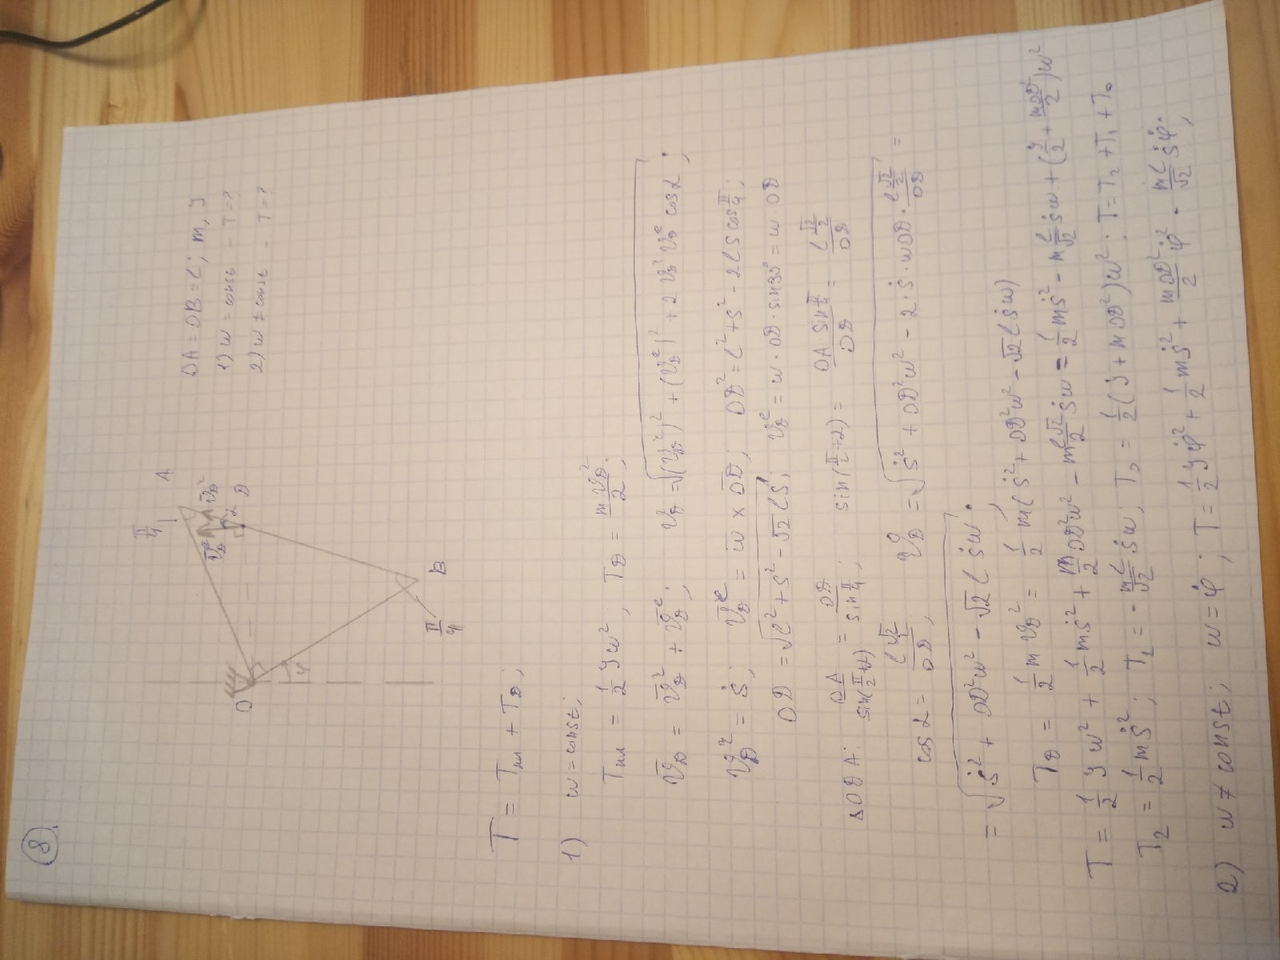 8.
OA = OB = L; m, J
1) ω = const - T = ?
2) ω ≠ const - T = ?
π/4
A
D
O
φ
B
π/4
T = Tпл + T_D;
1) ω = const;
Tпл = 1/2 J ω², T_D = m v_D²/2;
v̄_D = v̄_D^r + v̄_D^e; v_D = √((v_D^r)² + (v_D^e)² + 2 v_D^r v_D^e cos α);
v_D^r = ṡ; v̄_D^e = ω̄ × O̅D̅; OD² = L² + s² - 2Ls cos π/4;
OD = √(L² + s² - √2 Ls); v_D^e = ω · OD · sin 90° = ω OD
ΔODA: OA/sin(π/2+α) = OD/sin π/4; sin(π/2+α) = OA sin π/4 / OD = L √2/2 / OD
cos α = L √2/2 / OD; v_D = √(ṡ² + OD²ω² - 2 · ṡ · ω OD · L √2/2 / OD) =
= √(ṡ² + OD²ω² - √2 L ṡ ω);
T_D = 1/2 m v_D² = 1/2 m (ṡ² + OD²ω² - √2 L ṡ ω)
T = 1/2 J ω² + 1/2 m ṡ² + m/2 OD²ω² - m L√2/2 ṡ ω = 1/2 m ṡ² - m L/√2 ṡ ω + (J/2 + m OD²/2) ω²
T₂ = 1/2 m ṡ²; T₁ = - mL/√2 ṡ ω, T₀ = 1/2 (J + m OD²) ω²; T = T₂ + T₁ + T₀
2) ω ≠ const; ω = φ̇; T = 1/2 J φ̇² + 1/2 m ṡ² + m OD²/2 φ̇² - mL/√2 ṡ φ̇;